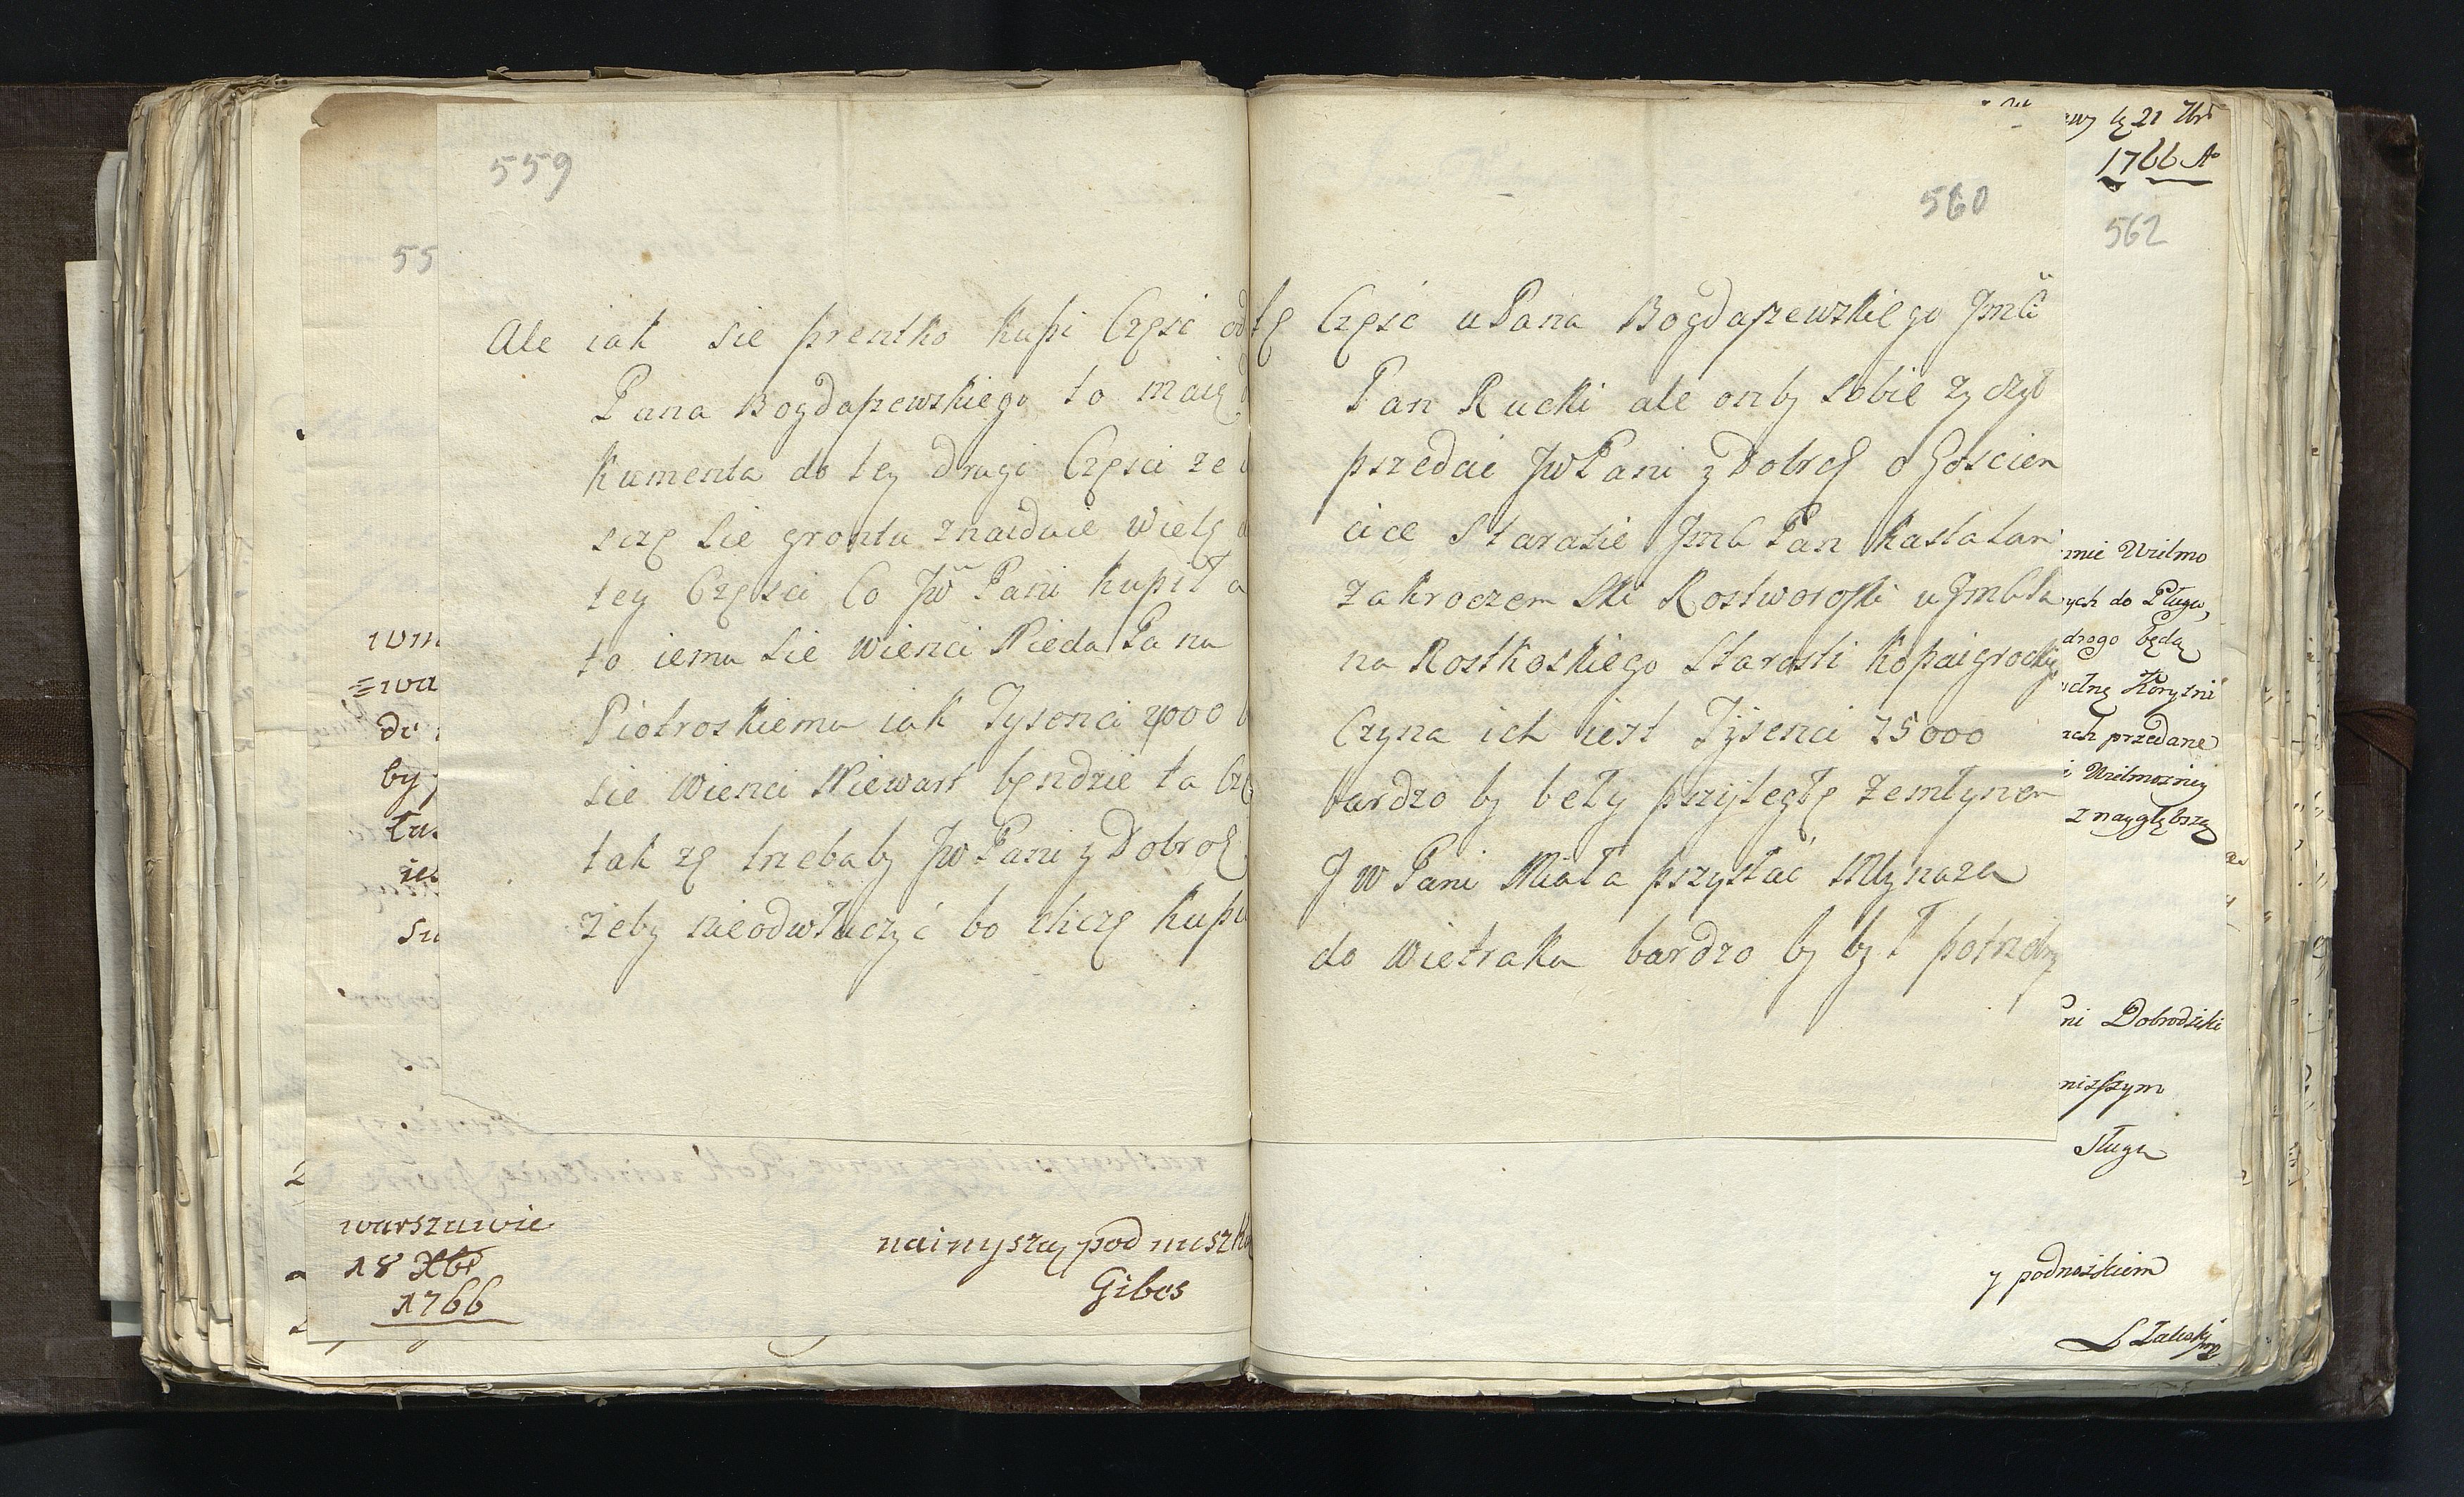 559
Ale iak sie prentko kupi Częsc od
Pana Bogdaszewskiego to maią
kumenta do tey drugi Częsci ze
szczę sie gronta znaiduie wielę
tey Częsci Co Jw Pani kupił a
to iemu sie wienci Nieda Panu
Piotroskiemu iak Tysenci 2000
sie wienci Niewart bęndzie ta Czę
tak zę trzebaby Jw Pani y Dobroę
zeby nieodwłuczyć bo chczę kupu
warszawie
18 Xbr
1766
nainyszy podnuszk
Gibes
55
560
tę Częsc u Pana Bogdaszewskiego Jmć
Pan Rucki ale onby sobie zyczył
pszedać Jw Pani y Dobrę o Goscien
cice Starasie Jmć Pan Kastalan
Zakroczemski Rostworoski u Jmć Pa
na Rostkoskiego Starosti kopaigrocky
Czyna ich iest Tysenci 25000
bardzo by beły pszyległę Zemłynem
J W Pani Miała przysłać Młynaza
do Wietraka bardzo by był potrzebny
21 7br
1766 Ao
562
mie Wielmo
ych do Pługu,
drogo będą
Korytni
ach przedane
i Wielmozniey
z naygłębszą
ni Dobrodziki
nizszym
Sługa
y podnoszkiem